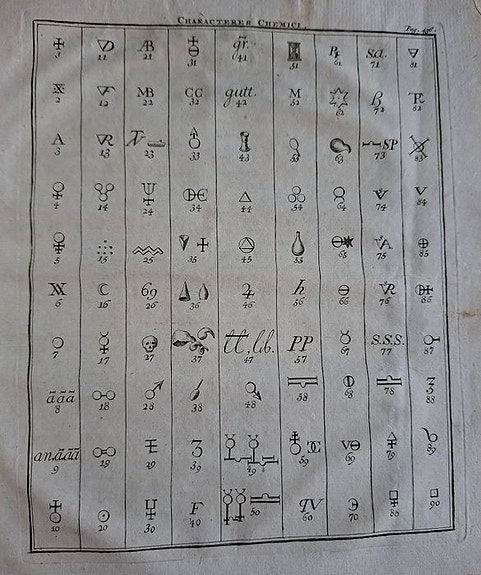 CHARACTERES CHEMICI.
Pag. 430.
AB gr. R s.a.
1 11 21 31 41 51 61 71 81
MB CC gutt. M
2 12 22 32 42 52 62 72 82
A SP
3 13 23 33 43 53 63 73 83
4 14 24 34 44 54 64 74 84
5 15 25 35 45 55 65 75 85
XX 69 h
6 16 26 36 46 56 66 76 86
tt, lib. PP S.S.S.
7 17 27 37 47 57 67 77 87
ããã
8 18 28 38 48 58 68 78 88
an. ããã
9 19 29 39 49 59 69 79 89
F qV
10 20 30 40 50 60 70 80 90